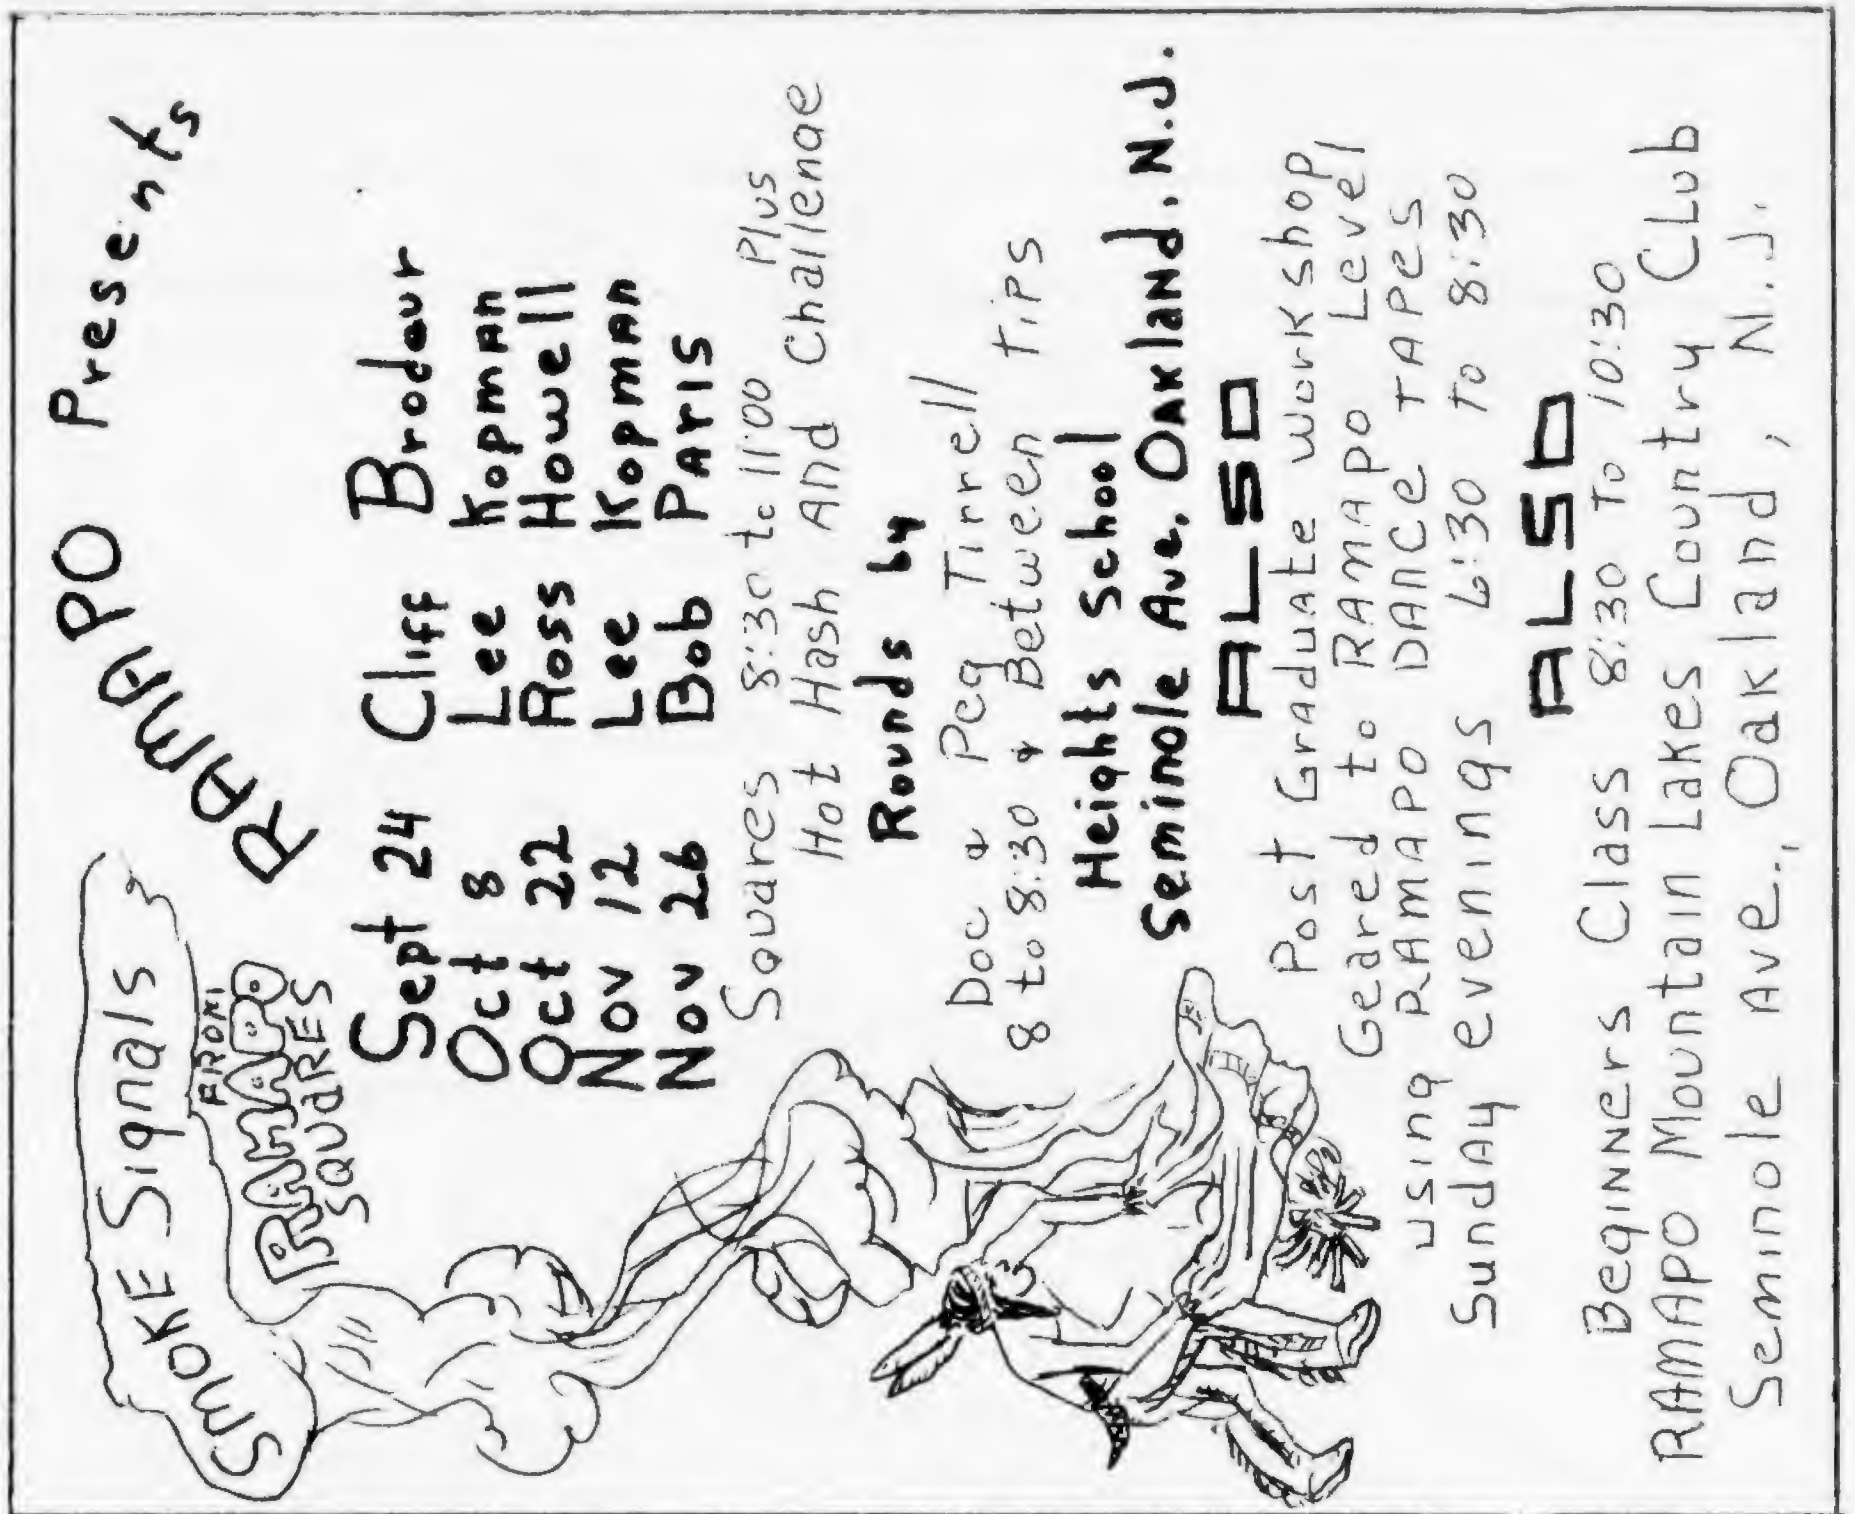 SMOKE Signals
FROM
RAMAPO
SQUARES
RAMAPO Presents
Sept 24 Cliff Brodeur
Oct 8 Lee Kopman
Oct 22 Ross Howell
Nov 12 Lee Kopman
Nov 26 Bob PARIS
Squares 8:30 to 11:00 Plus
Hot Hash And Challenge
Rounds by
Doc & Peg Tirrell
8 to 8:30 & Between Tips
Heights School
Seminole Ave, OAKland, N.J.
ALSO
Post Graduate workshop,
Geared to RAMAPO Level
using RAMAPO DANCE TAPES
Sunday evenings 6:30 To 8:30
ALSO
Beginners Class 8:30 To 10:30
RAMAPO Mountain Lakes Country Club
Seminole Ave., Oakland, N.J.